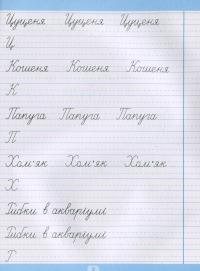 Цуценя Цуценя Цуценя
Ц
Кошеня Кошеня Кошеня
К
Папуга Папуга Папуга
П
Хом'як Хом'як Хом'як
Х
Рибки в акваріумі
Рибки в акваріумі
Р